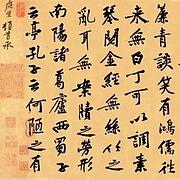 簾青談笑有鴻儒往
來無白丁可以調素
琴閱金經無絲竹之
亂耳無案牘之勞形
南陽諸葛廬西蜀子
云亭孔子云何陋之有